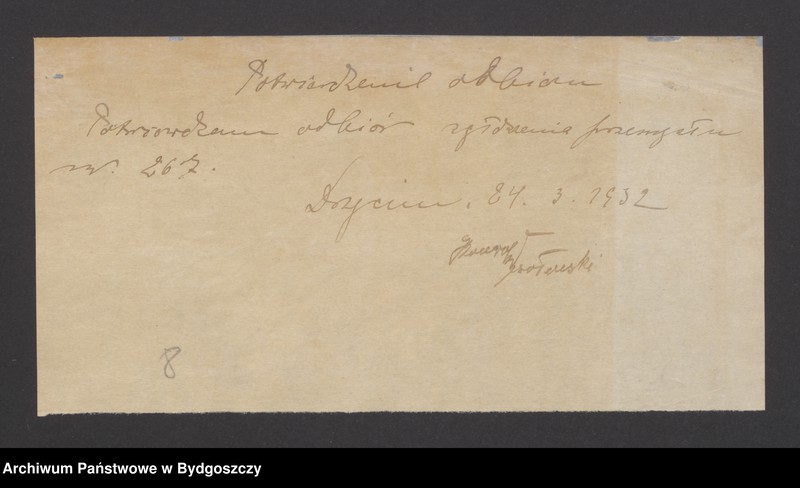 Potwierdzenie odbioru
Potwierdzam odbiór zgłoszenia przemysłu
nr. 267.
Drzycim. 24. 3. 1932
8
Archiwum Państwowe w Bydgoszczy